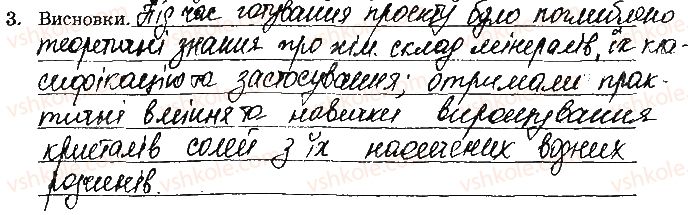 3. Висновки. Під час готування проекту було поглиблено
теоретичні знання про хім. склад мінералів, їх кла-
сифікацію та застосування; отримали прак-
тичні вміння та навички вирощування
кристалів солей з їх насичених водних
розчинів.